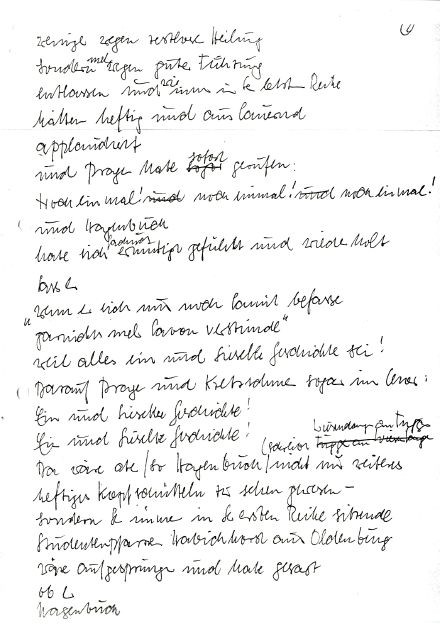 (4)
weniger wegen restloser Heilung
sondern mehr wegen guter Führung
entlassen und wir immer in der letzten Reihe
hätten heftig und ausdauernd
applaudiert
und Prager hätte sofort gerufen:
Noch einmal! und noch einmal! und noch einmal!
und Hagenbuch
hätte sich dadurch ermutigt gefühlt und wiederholt
dass er
"wenn er sich nur noch damit befasse
garnichts mehr davon verstünde"
weil alles ein und dieselbe Geschichte sei!
Darauf Prager und Kretschmer sogar im Chor:
Ein und dieselbe Geschichte!
Ein und dieselbe Geschichte!
Da wäre aber (so Hagenbuch) nicht nur weiteres
heftiges Kopfschütteln zu sehen gewesen –
sondern der immer in der ersten Reihe sitzende
Studentenpfarrer Habichhorst aus Oldenburg
wäre aufgesprungen und hätte gesagt
ob er
Hagenbuch